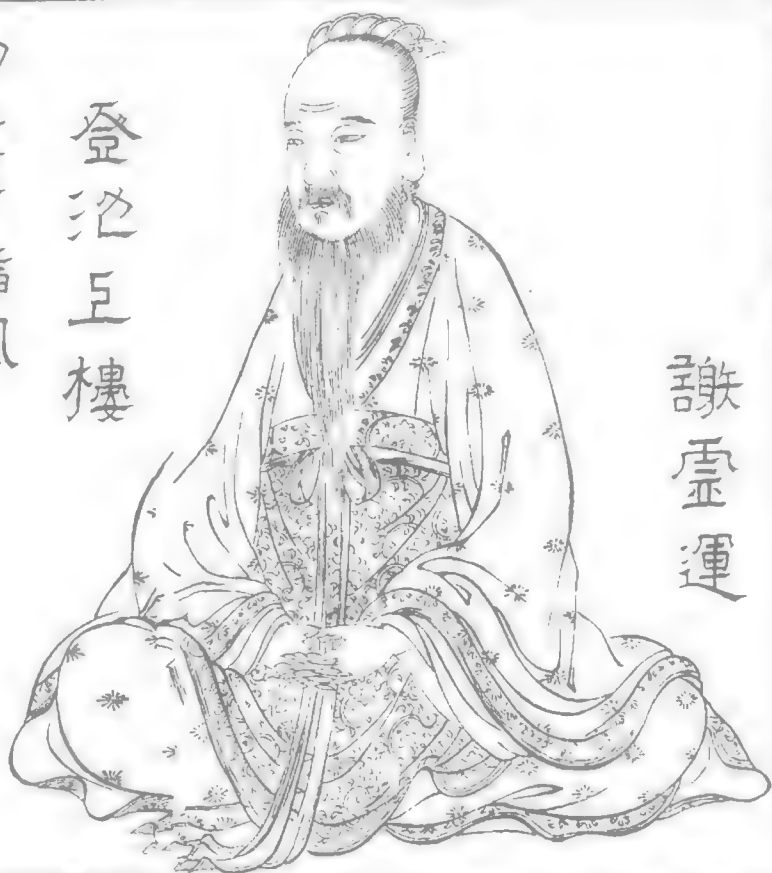 謝霊運
登池上樓